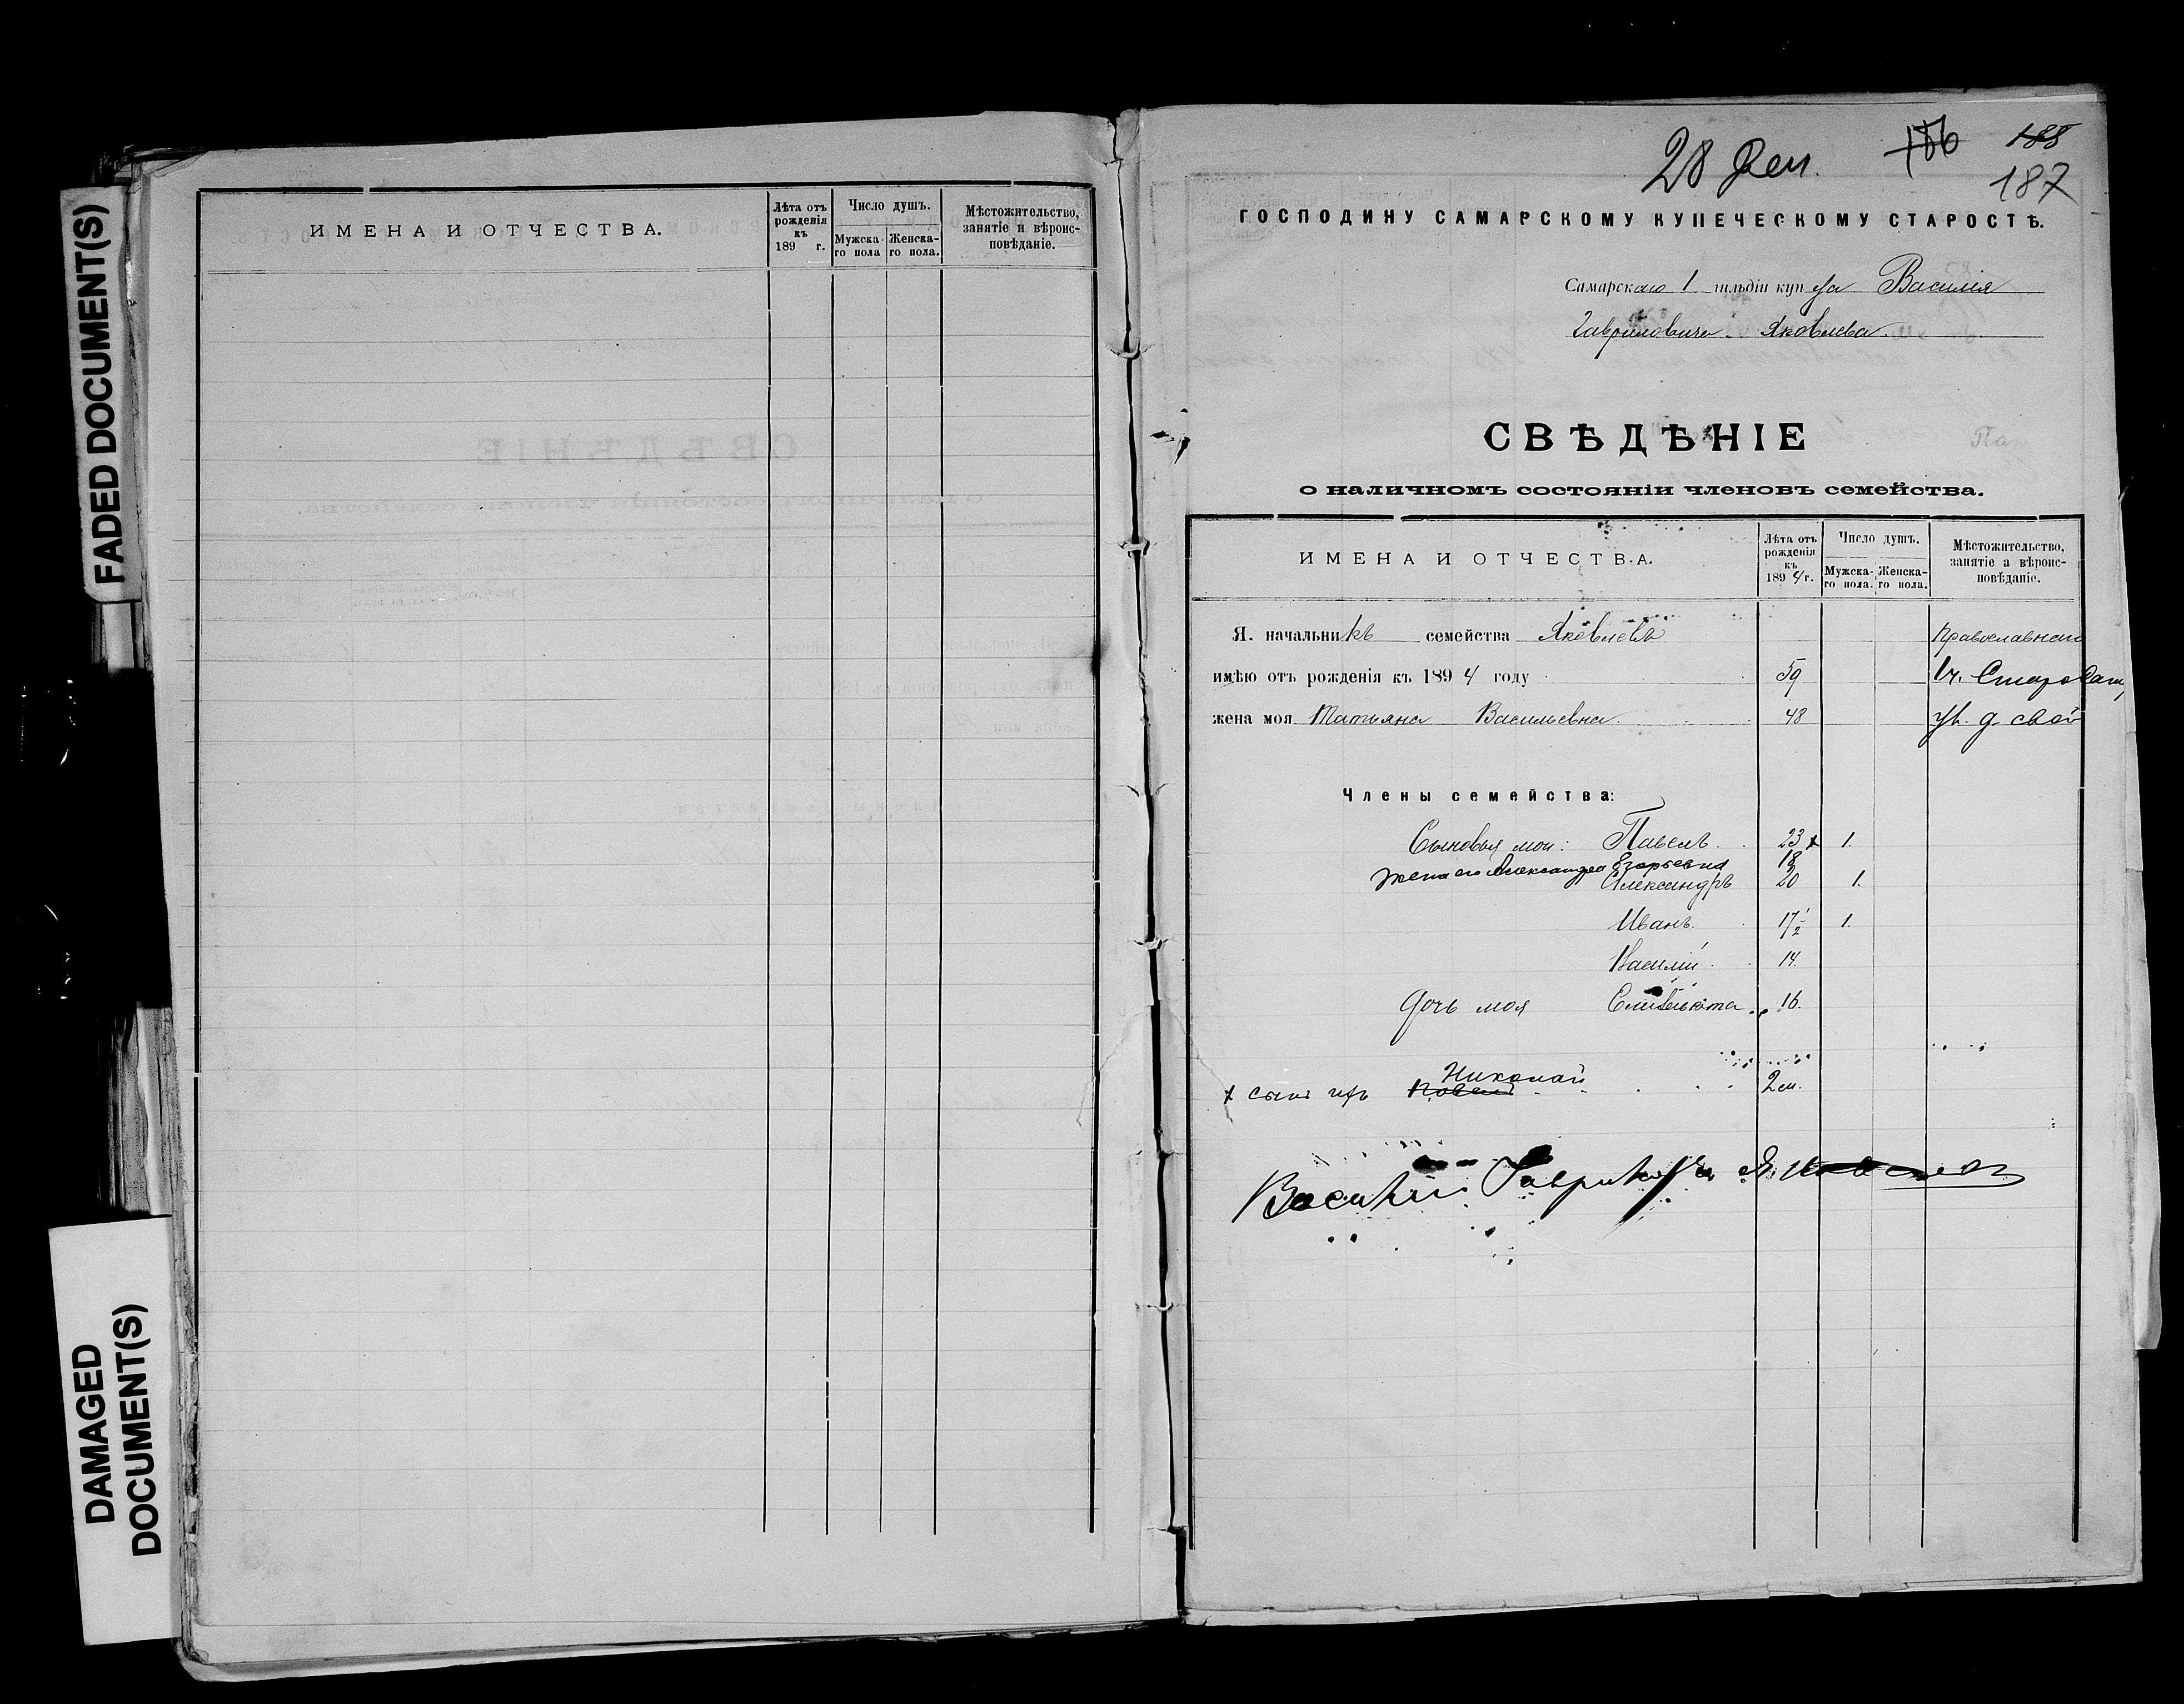 FADED DOCUMENT(S)
DAMAGED
DOCUMENT(S)
ИМЕНА И ОТЧЕСТВА.
Лѣта отъ
рожденія
къ
189 г.
Число душъ.
Мужска-
го пола
Женска-
го пола.
Мѣстожительство,
занятіе и вѣроис-
повѣданіе.
28 Дек. 186 188
187
ГОСПОДИНУ САМАРСКОМУ КУПЕЧЕСКОМУ СТАРОСТѢ.
Самарскаго 1 гильдіи купца Василія
Гавриловича Яковлева.
СВѢДѢНІЕ
о наличномъ состояніи членовъ семейства.
ИМЕНА И ОТЧЕСТВА.
Лѣта отъ
рожденія
къ
1894 г.
Число душъ.
Мужска-
го пола.
Женска-
го пола.
Мѣстожительство,
занятіе а вѣроис-
повѣданіе.
Я. начальникъ семейства Яковлевъ Православнаго
имѣю отъ рожденія къ 1894 году 59 1 ч.
жена моя Татьяна Васильевна. 48 д. свой
Члены семейства:
Сыновья мои: Павелъ. 23 x 1.
Жена его Александра Егорьевна 18
Александръ 20 1.
Иванъ. 17 1/2 1.
Василій. 14.
Дочь моя Елизавета. 16.
Николай
x сынъ ихъ 2 м.
Василий Гаврилычъ Яковлев